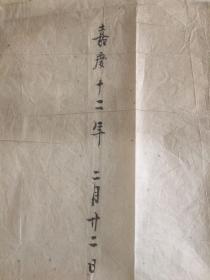 嘉慶十二年 二月廿二日